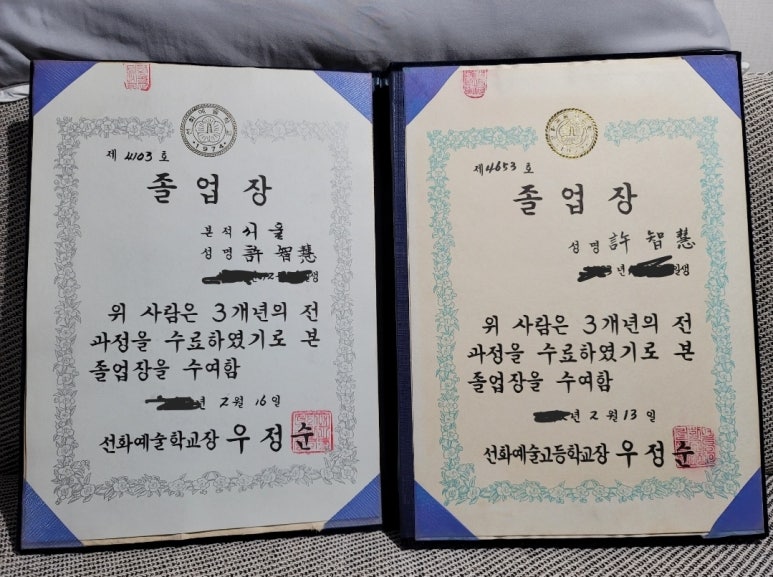 제 4103 호
졸업장
본적 서울
성명 許智慧
년 2 일생
위 사람은 3개년의 전
과정을 수료하였기로 본
졸업장을 수여함
년 2월 16일
선화예술학교장 우정순
1974
제 4653 호
졸업장
성명 許智慧
3년 일생
위 사람은 3개년의 전
과정을 수료하였기로 본
졸업장을 수여함
년 2월 13일
선화예술고등학교장 우정순